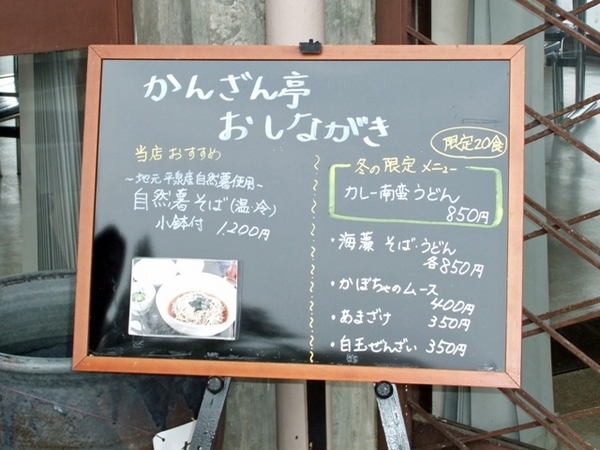 かんざん亭
おしながき
当店おすすめ
~地元平泉産自然薯使用~
自然薯そば(温・冷)
小鉢付 1,200円
限定20食
冬の限定メニュー
カレー南蛮うどん
850円
・海藻そば・うどん
各850円
・かぼちゃのムース
400円
・あまざけ 350円
・白玉ぜんざい 350円